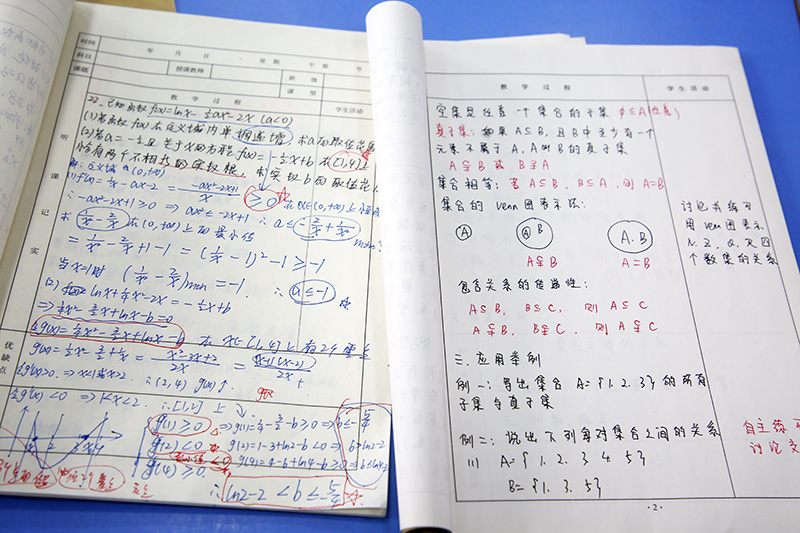 时间 年 月 日 星期 午第 节
科目 授课教师 班级
课题 课型
教 学 过 程 学生活动
听课记实
优缺点
22. 已知函数 f(x)=lnx-½ax²-2x (a<0)
(1)若函数f(x)在定义域内单调递增,求a的取值范围
(2)若a=-½且关于x的方程f(x)=-½x+b在[1,4]上
恰有两个不相等的实数根,求实数b的取值范
解:定义域 (0,+∞)
(1) f'(x)=1/x-ax-2=-ax²-2x+1/x ≥0 在x∈(0,+∞)上
∴-ax²-2x+1≥0 ⇒ ax²≤-2x+1 ∴a≤-2/x+1/x²
求 1/x²-2/x 在(0,+∞)上的最小值
=1/x²-2/x+1-1=(1/x-1)²-1≥-1
当x=1时 (1/x²-2/x)min=-1 ∴a≤-1
(2) f(x)=lnx+¼x²-2x=-½x+b
⇒¼x²-3/2x+lnx-b=0
令g(x)=¼x²-3/2x+lnx-b 在x∈[1,4]上有2个零点
g'(x)=½x-3/2+1/x=x²-3x+2/2x=(x-1)(x-2)/2x
令g'(x)>0 ⇒x<1或x>2 ∴(2,4) g(x)↑
令g'(x)<0 ⇒1<x<2 ∴[1,2]上↓
g(1)≥0 ⇒g(1)=¼-3/2-b≥0 ⇒b≤-5/4
g(2)<0 g(2)=1-3+ln2-b<0 ⇒b>ln2-2
g(4)≥0 g(4)=4-6+ln4-b≥0
∴ln2-2<b≤-5/4
教 学 过 程 学生活动
空集是任意一个集合的子集 ∅⊆A(任意)
真子集:如果A⊆B,且B中至少有一个
元素不属于A,A叫B的真子集
A⊊B 或 B⊋A
集合相等:若A⊆B,B⊆A,则A=B
集合的Venn图表示法:
A A B A.B
A⊊B A=B
讨论并练习
用Venn图表示
N.Z.Q.R四
个数集的关系
包含关系的传递性:
A⊆B,B⊆C,则A⊆C
A⊊B,B⊊C,则A⊊C
三.应用举例
例一:写出集合A={1.2.3}的所有
子集与真子集
例二:说出下列每对集合之间的关系
(1) A={1.2.3 4 5}
B={1.3.5}
自主练
讨论
·2·